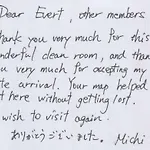 Dear Evert, other members
hank you very much for this
nderful clean room, and than
u very much for accepting my
te arrival. Your map helped
t here without getting lost.
wish to visit again.
ありがとうございました。 Michi